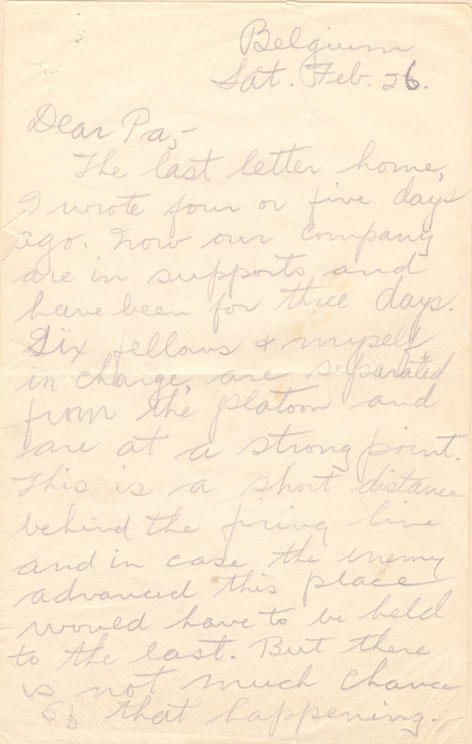 Belgium
Sat. Feb. 26.
Dear Pa,-
The last letter home,
I wrote four or five days
ago. Now our company
are in supports and
have been for three days.
Six fellows & myself
in charge, are separated
from the platoon and
are at a strong point.
This is a short distance
behind the firing line
and in case the enemy
advanced this place
would have to be held
to the last. But there
is not much chance
of that happening.